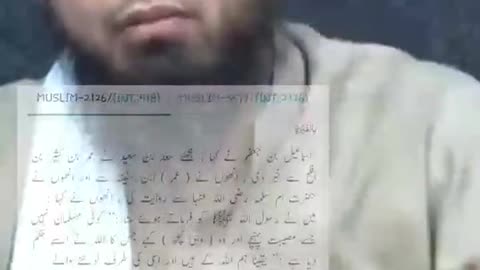 MUSLIM-2126/(INT:918) MUSLIM-918/(INT:2126)
بالفقرة
اسماعیل بن جعفر نے کہا : مجھے سعد بن سعید نے عمر بن کثیر بن
افلح سے خبر دی ، انھوں نے ( عمر ) ابن سفینہ سے اور انھوں نے
حضرت ام سلمہ رضی اللہ عنھا سے روایت کی ، انھوں نے کہا :
میں نے رسول اللہ ﷺ کو فرماتے ہوئے سنا : " کوئی مسلمان نہیں
جسے مصیبت پہنچے اور وہ ( وہی کچھ ) کہے جس کا اللہ نے اسے حکم
دیا ہے : " یقیناً ہم اللہ کے ہیں اور اسی کی طرف لوٹنے والے